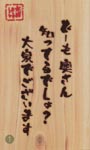 どーも奥さん
知ってるでしょ?
大泉でございます